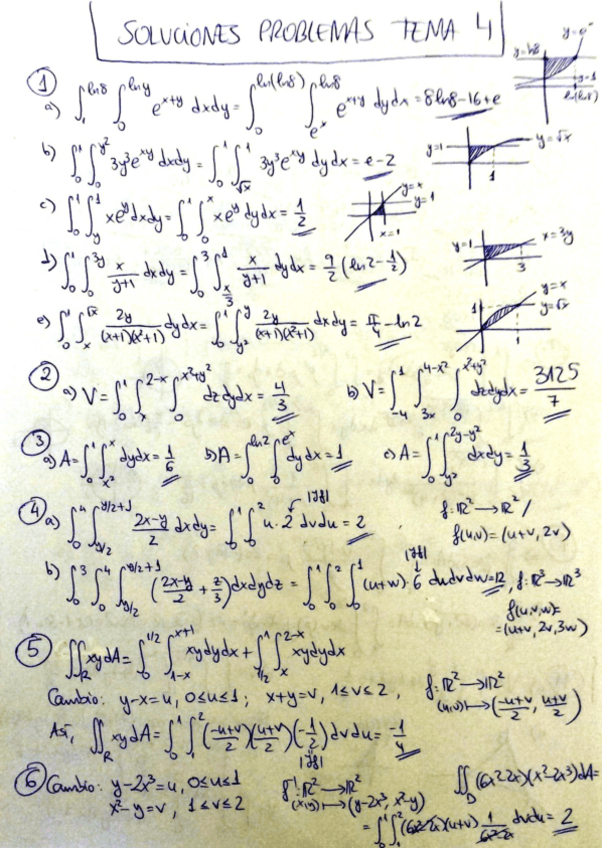 SOLUCIONES PROBLEMAS TEMA 4
① a) ∫_1^{ln8} ∫_0^{lny} e^{x+y} dxdy = ∫_0^{ln(ln8)} ∫_{e^x}^{ln8} e^{x+y} dydx = 8ln8-16+e
y=ln8 y=e^x y=1 ln(ln8)
b) ∫_0^1 ∫_0^{y²} 3y³e^{xy} dxdy = ∫_0^1 ∫_{√x}^1 3y³e^{xy} dydx = e-2
y=1 y=√x 1
c) ∫_0^1 ∫_y^1 xe^y dxdy = ∫_0^1 ∫_0^x xe^y dydx = 1/2
y=x y=1 x=1
d) ∫_0^1 ∫_0^{3y} x/(y+1) dxdy = ∫_0^3 ∫_{x/3}^1 x/(y+1) dydx = 9/2 (ln2-1/2)
y=1 x=3y 3
e) ∫_0^1 ∫_x^{√x} 2y/((x+1)(x²+1)) dydx = ∫_0^1 ∫_{y²}^y 2y/((x+1)(x²+1)) dxdy = π/4 - ln2
y=x y=√x 1 1
② a) V= ∫_0^1 ∫_x^{2-x} ∫_0^{x²+y²} dzdydx = 4/3 b) V= ∫_{-4}^1 ∫_{3x}^{4-x²} ∫_0^{x²+y²} dzdydx = 3125/7
③ a) A= ∫_0^1 ∫_{x²}^x dydx = 1/6 b) A= ∫_0^{ln2} ∫_0^{e^x} dydx = 1 c) A= ∫_0^1 ∫_{y²}^{2y-y²} dxdy = 1/3
④ a) ∫_0^4 ∫_{y/2}^{y/2+1} (2x-y)/2 dxdy = ∫_0^1 ∫_0^2 u·2 dvdu = 2 |Jf| f:ℝ²→ℝ² /
f(u,v)=(u+v, 2v)
b) ∫_0^3 ∫_0^4 ∫_{y/2}^{y/2+1} ((2x-y)/2 + z/3) dxdydz = ∫_0^1 ∫_0^2 ∫_0^1 (u+w)·6 dudvdw = 12, |Jf| f:ℝ³→ℝ³
f(u,v,w)=
=(u+v, 2v, 3w)
⑤ ∬_R xydA = ∫_0^{1/2} ∫_{1-x}^{x+1} xydydx + ∫_{1/2}^1 ∫_x^{2-x} xydydx
Cambio: y-x=u, 0≤u≤1; x+y=v, 1≤v≤2, f:ℝ²→ℝ²
(u,v)↦((-u+v)/2, (u+v)/2)
Así, ∬_R xydA = ∫_0^1 ∫_1^2 ((-u+v)/2)((u+v)/2)(-1/2) dvdu = -1/4
|Jf|
⑥ Cambio: y-2x³=u, 0≤u≤1 f⁻¹:ℝ²→ℝ² ∬_D (6x²-2x)(x²-2x³)dA=
x²-y=v, 1≤v≤2 (x,y)↦(y-2x³, x²-y)
= ∫_0^1 ∫_1^2 (6x²-2x)(u+v) 1/(6x²-2x) dvdu = 2